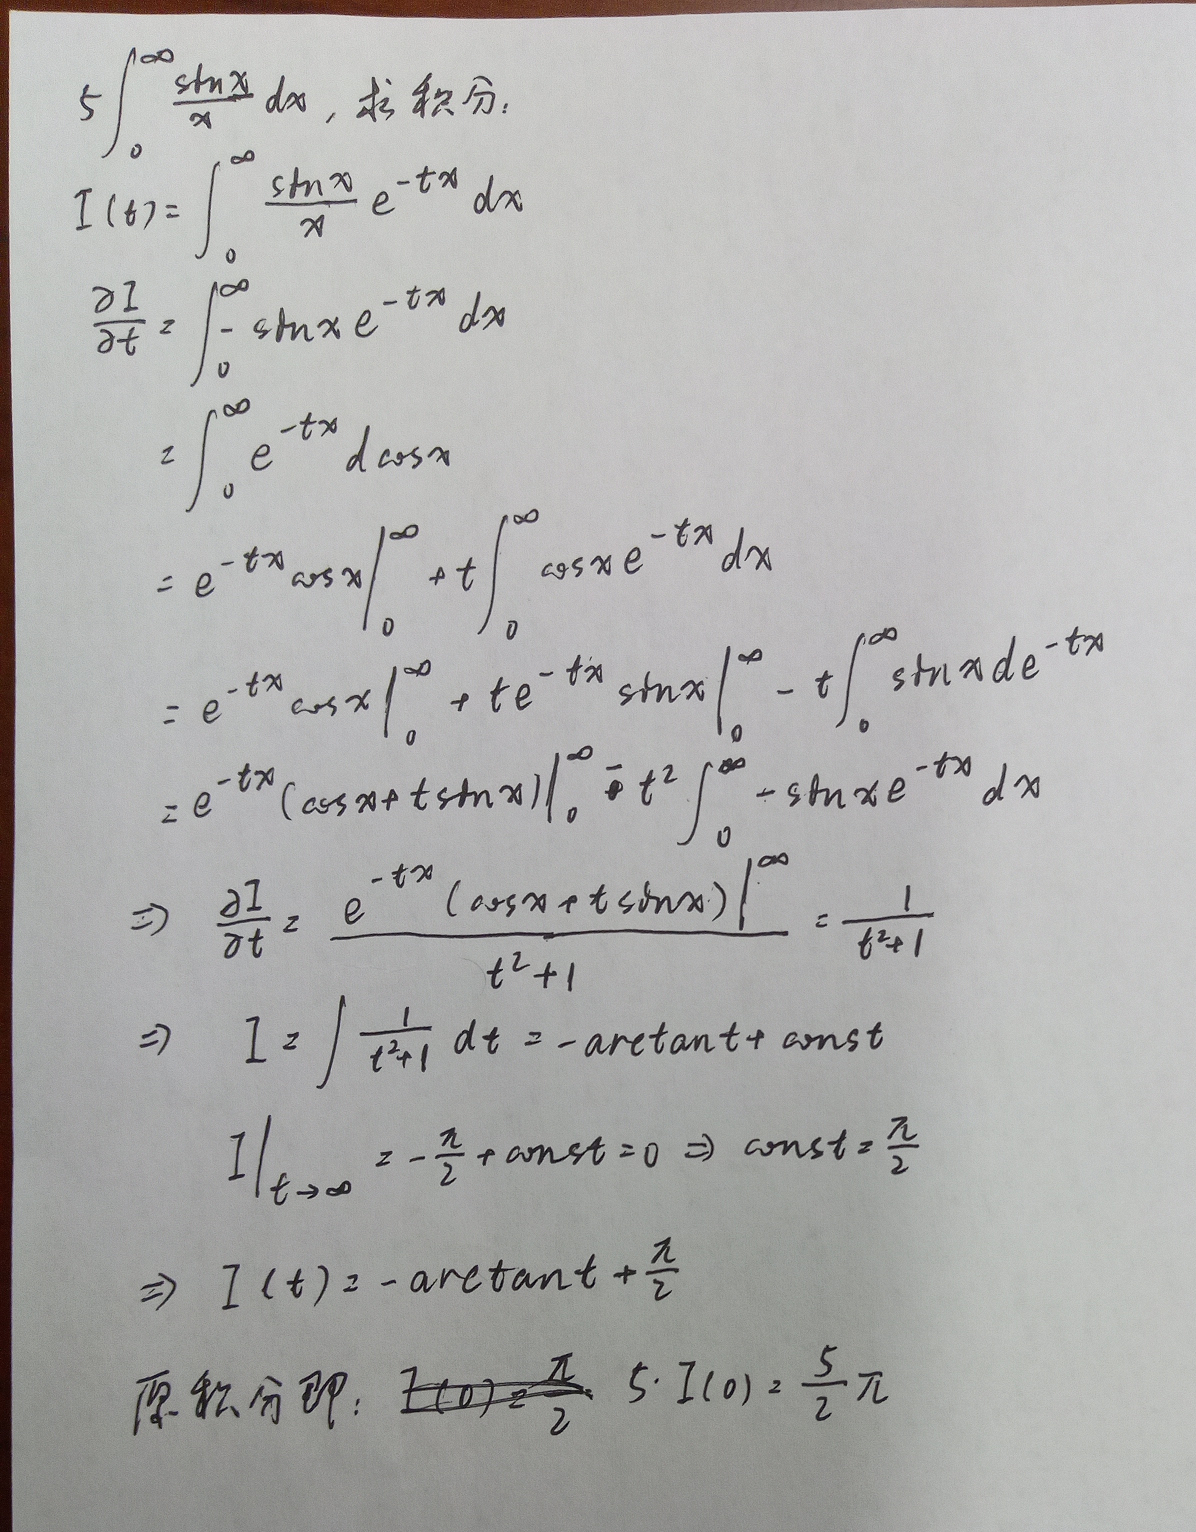 5∫₀^∞ sinx/x dx, 求积分:
I(t) = ∫₀^∞ sinx/x e^(-tx) dx
∂I/∂t = ∫₀^∞ -sinx e^(-tx) dx
= ∫₀^∞ e^(-tx) d cosx
= e^(-tx) cosx|₀^∞ + t∫₀^∞ cosx e^(-tx) dx
= e^(-tx) cosx|₀^∞ + te^(-tx) sinx|₀^∞ - t∫₀^∞ sinx de^(-tx)
= e^(-tx) (cosx + tsinx)|₀^∞ - t² ∫₀^∞ -sinx e^(-tx) dx
⇒ ∂I/∂t = e^(-tx) (cosx + tsinx)|^∞ / (t²+1) = 1/(t²+1)
⇒ I = ∫ 1/(t²+1) dt = -arctant + const
I|t→∞ = -π/2 + const = 0 ⇒ const = π/2
⇒ I(t) = -arctant + π/2
原积分即: I(0) = π/2 5·I(0) = 5/2 π